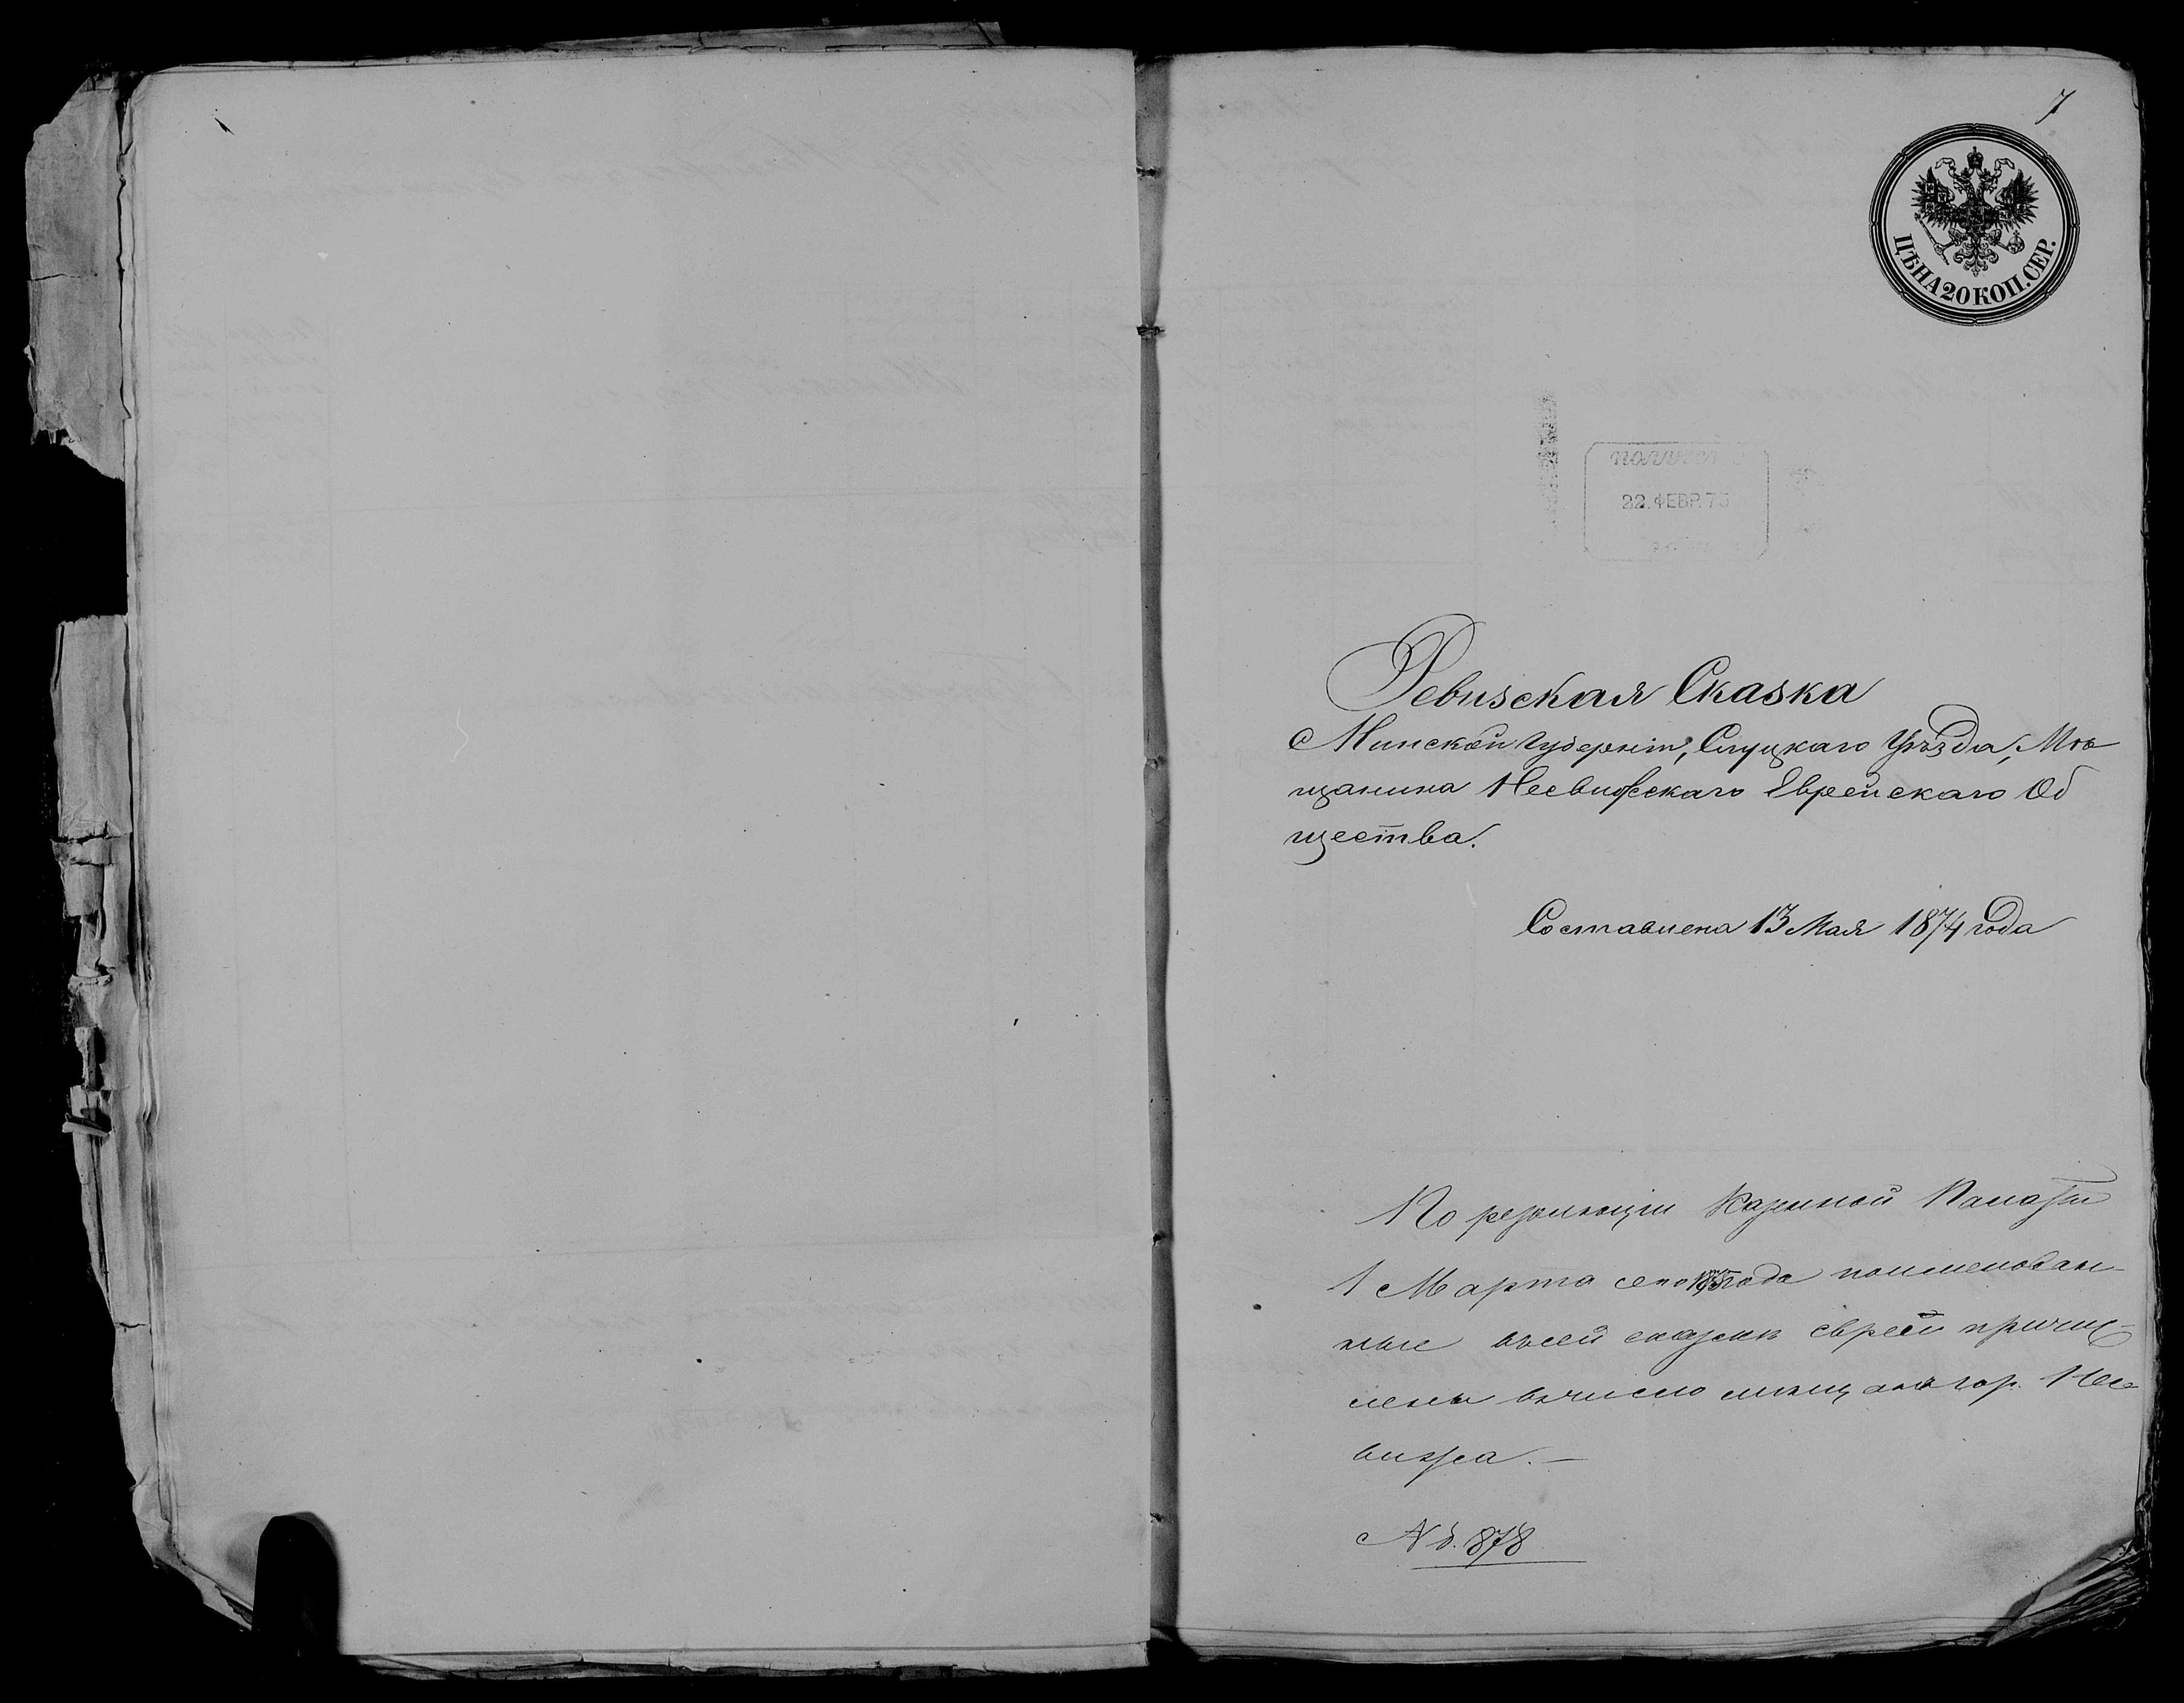 7
ЦѢНА 20 КОП. СЕР.
ПОЛУЧЕНО
22. ФЕВР. 75
Ревизская Сказка
Минской Губерніи, Слуцкаго Уѣзда, Мѣ
щанина Несвижскаго Еврейскаго Об
щества.
Составлена 13 Мая 1874 года
По резолюціи Казенной Палаты
1 Марта сего 1875 года поименован-
ные въ сей сказкѣ евреи причис-
лены въ число мѣщанъ гор. Нес
вижа. —
№ д. 878